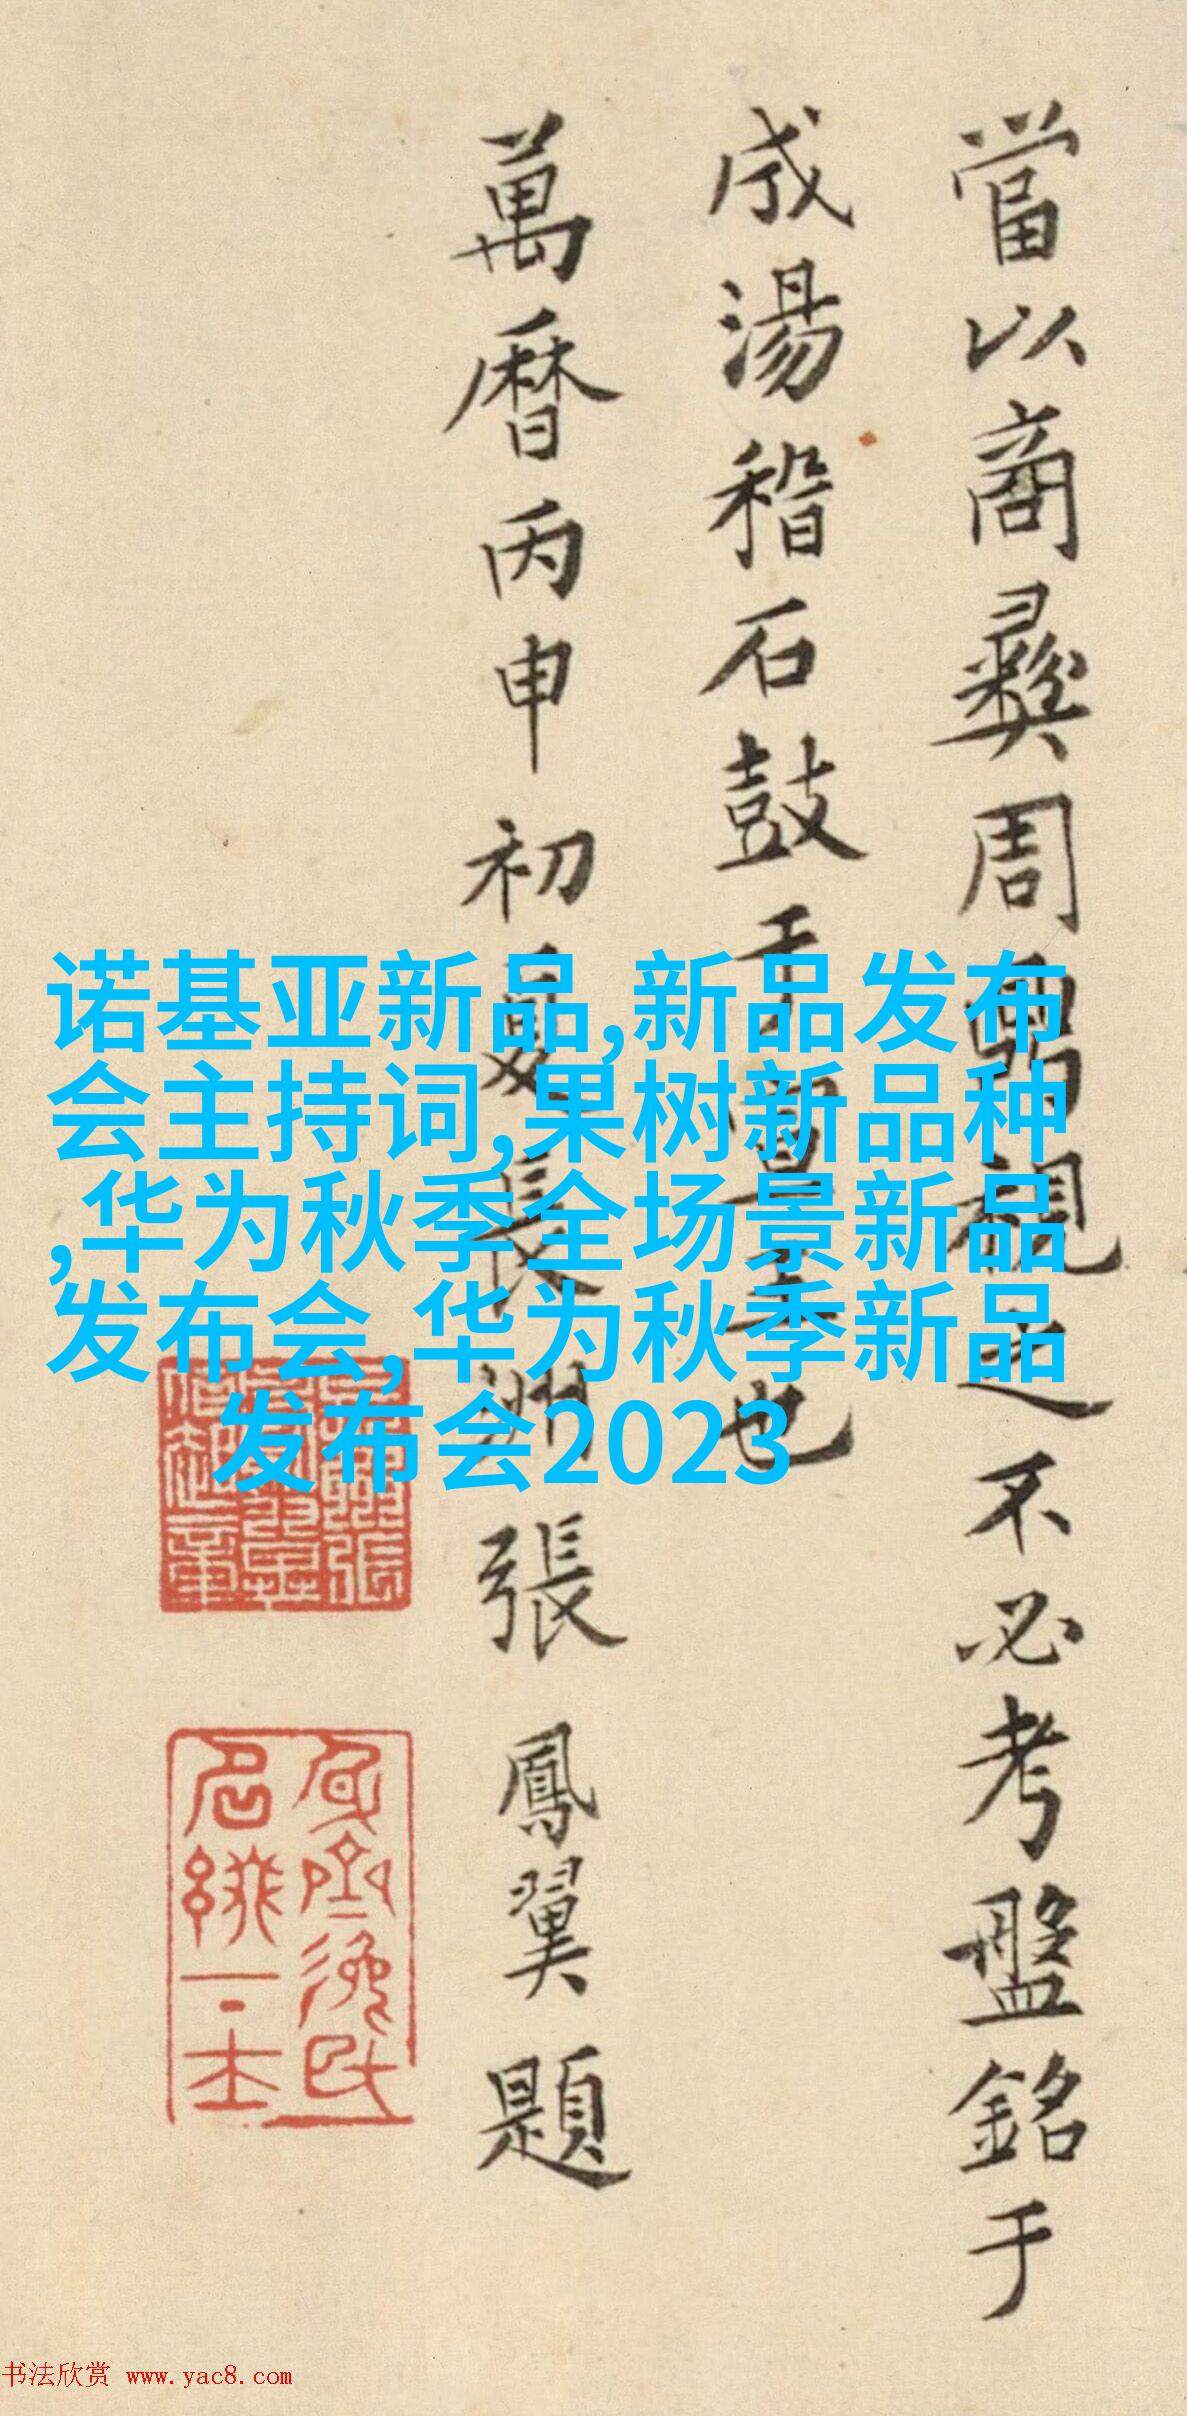 當以商彝周視之不必考盤銘于
成湯稽石鼓于宣王也
萬曆丙申初夏長洲張鳳翼題
诺基亚新品,新品发布
会主持词,果树新品种
,华为秋季全场景新品
发布会,华为秋季新品
发布会2023
书法欣赏 www.yac8.com